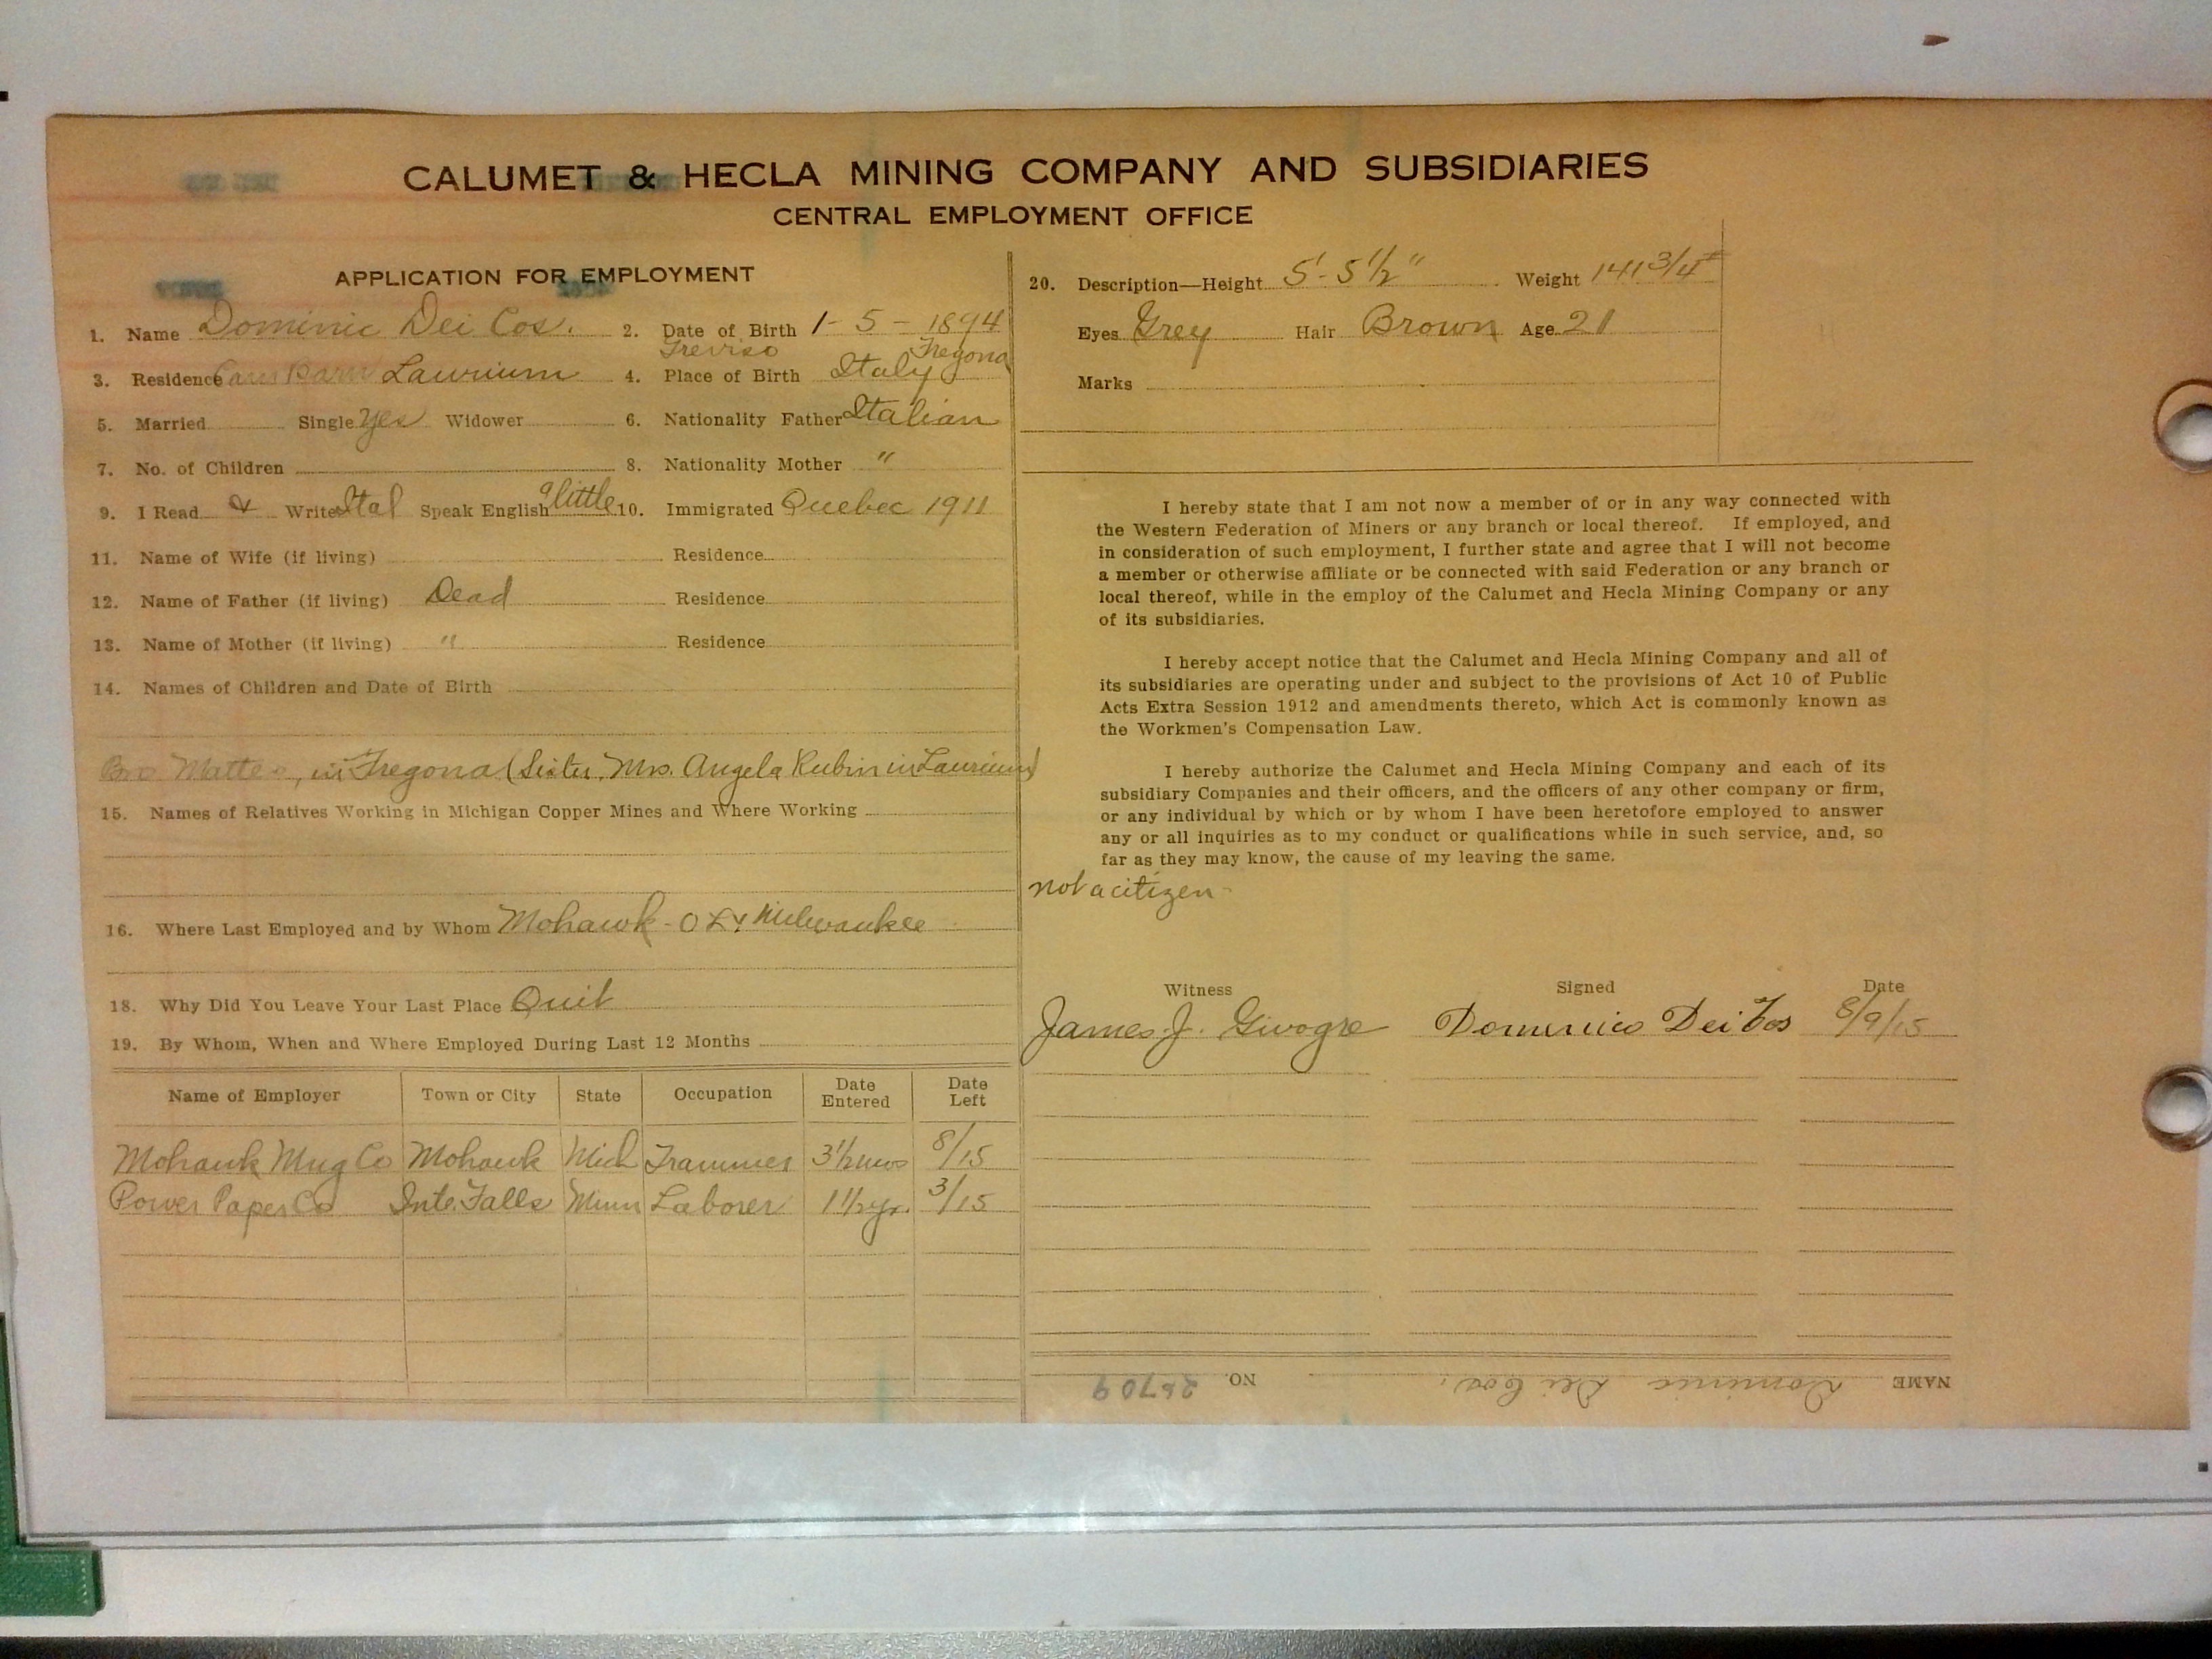 CALUMET & HECLA MINING COMPANY AND SUBSIDIARIES
CENTRAL EMPLOYMENT OFFICE
APPLICATION FOR EMPLOYMENT
1. Name Dominic Dei Cos. 2. Date of Birth 1 - 5 - 1894
Treviso Fregona
3. Residence Laurium 4. Place of Birth Italy
5. Married Single Yes Widower 6. Nationality Father Italian
7. No. of Children 8. Nationality Mother "
9. I Read & Write Ital Speak English a little 10. Immigrated Quebec 1911
11. Name of Wife (if living) Residence
12. Name of Father (if living) Dead Residence
13. Name of Mother (if living) " Residence
14. Names of Children and Date of Birth
Bro Matteo, in Fregona (Sister, Mrs. Angela Rubin in Laurium)
15. Names of Relatives Working in Michigan Copper Mines and Where Working
16. Where Last Employed and by Whom Mohawk - Milwaukee
18. Why Did You Leave Your Last Place Quit
19. By Whom, When and Where Employed During Last 12 Months
Name of Employer Town or City State Occupation Date Entered Date Left
Mohawk Mng Co Mohawk Mich Trammer 3 1/2 mos 8/15
Power Paper Co Inte. Falls Minn Laborer 1 1/2 yr. 3/15
20. Description—Height 5'-5 1/2" Weight 141 3/4 #
Eyes Grey Hair Brown Age 21
Marks
I hereby state that I am not now a member of or in any way connected with
the Western Federation of Miners or any branch or local thereof. If employed, and
in consideration of such employment, I further state and agree that I will not become
a member or otherwise affiliate or be connected with said Federation or any branch or
local thereof, while in the employ of the Calumet and Hecla Mining Company or any
of its subsidiaries.
I hereby accept notice that the Calumet and Hecla Mining Company and all of
its subsidiaries are operating under and subject to the provisions of Act 10 of Public
Acts Extra Session 1912 and amendments thereto, which Act is commonly known as
the Workmen's Compensation Law.
I hereby authorize the Calumet and Hecla Mining Company and each of its
subsidiary Companies and their officers, and the officers of any other company or firm,
or any individual by which or by whom I have been heretofore employed to answer
any or all inquiries as to my conduct or qualifications while in such service, and, so
far as they may know, the cause of my leaving the same.
not a citizen
Witness Signed Date
James J. Domenico Dei Cos 8/9/15
NAME Dominic Dei Cos. NO. 26709